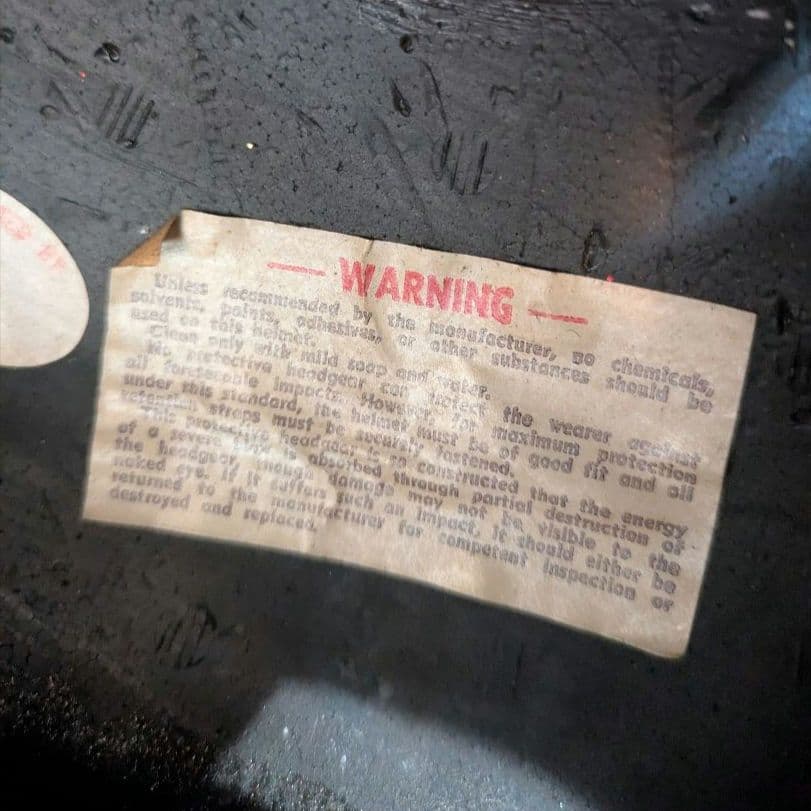 — WARNING —
Unless recommended by the manufacturer, no chemicals,
solvents, paints, adhesives, or other substances should be
used on this helmet.
Clean only with mild soap and water.
No protective headgear can protect the wearer against
all foreseeable impacts. However, for maximum protection
under this standard, the helmet must be of good fit and all
retention straps must be securely fastened.
This protective headgear is so constructed that the energy
of a severe blow is absorbed through partial destruction of
the headgear, though damage may not be visible to the
naked eye. If it suffers such an impact, it should either be
returned to the manufacturer for competent inspection or
destroyed and replaced.